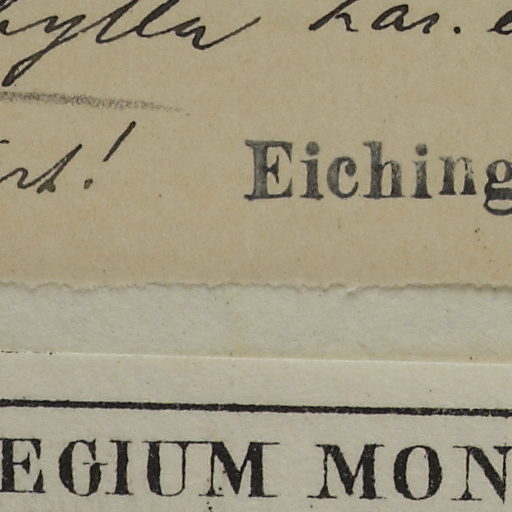 hylla har.
! Eiching
EGIUM MON